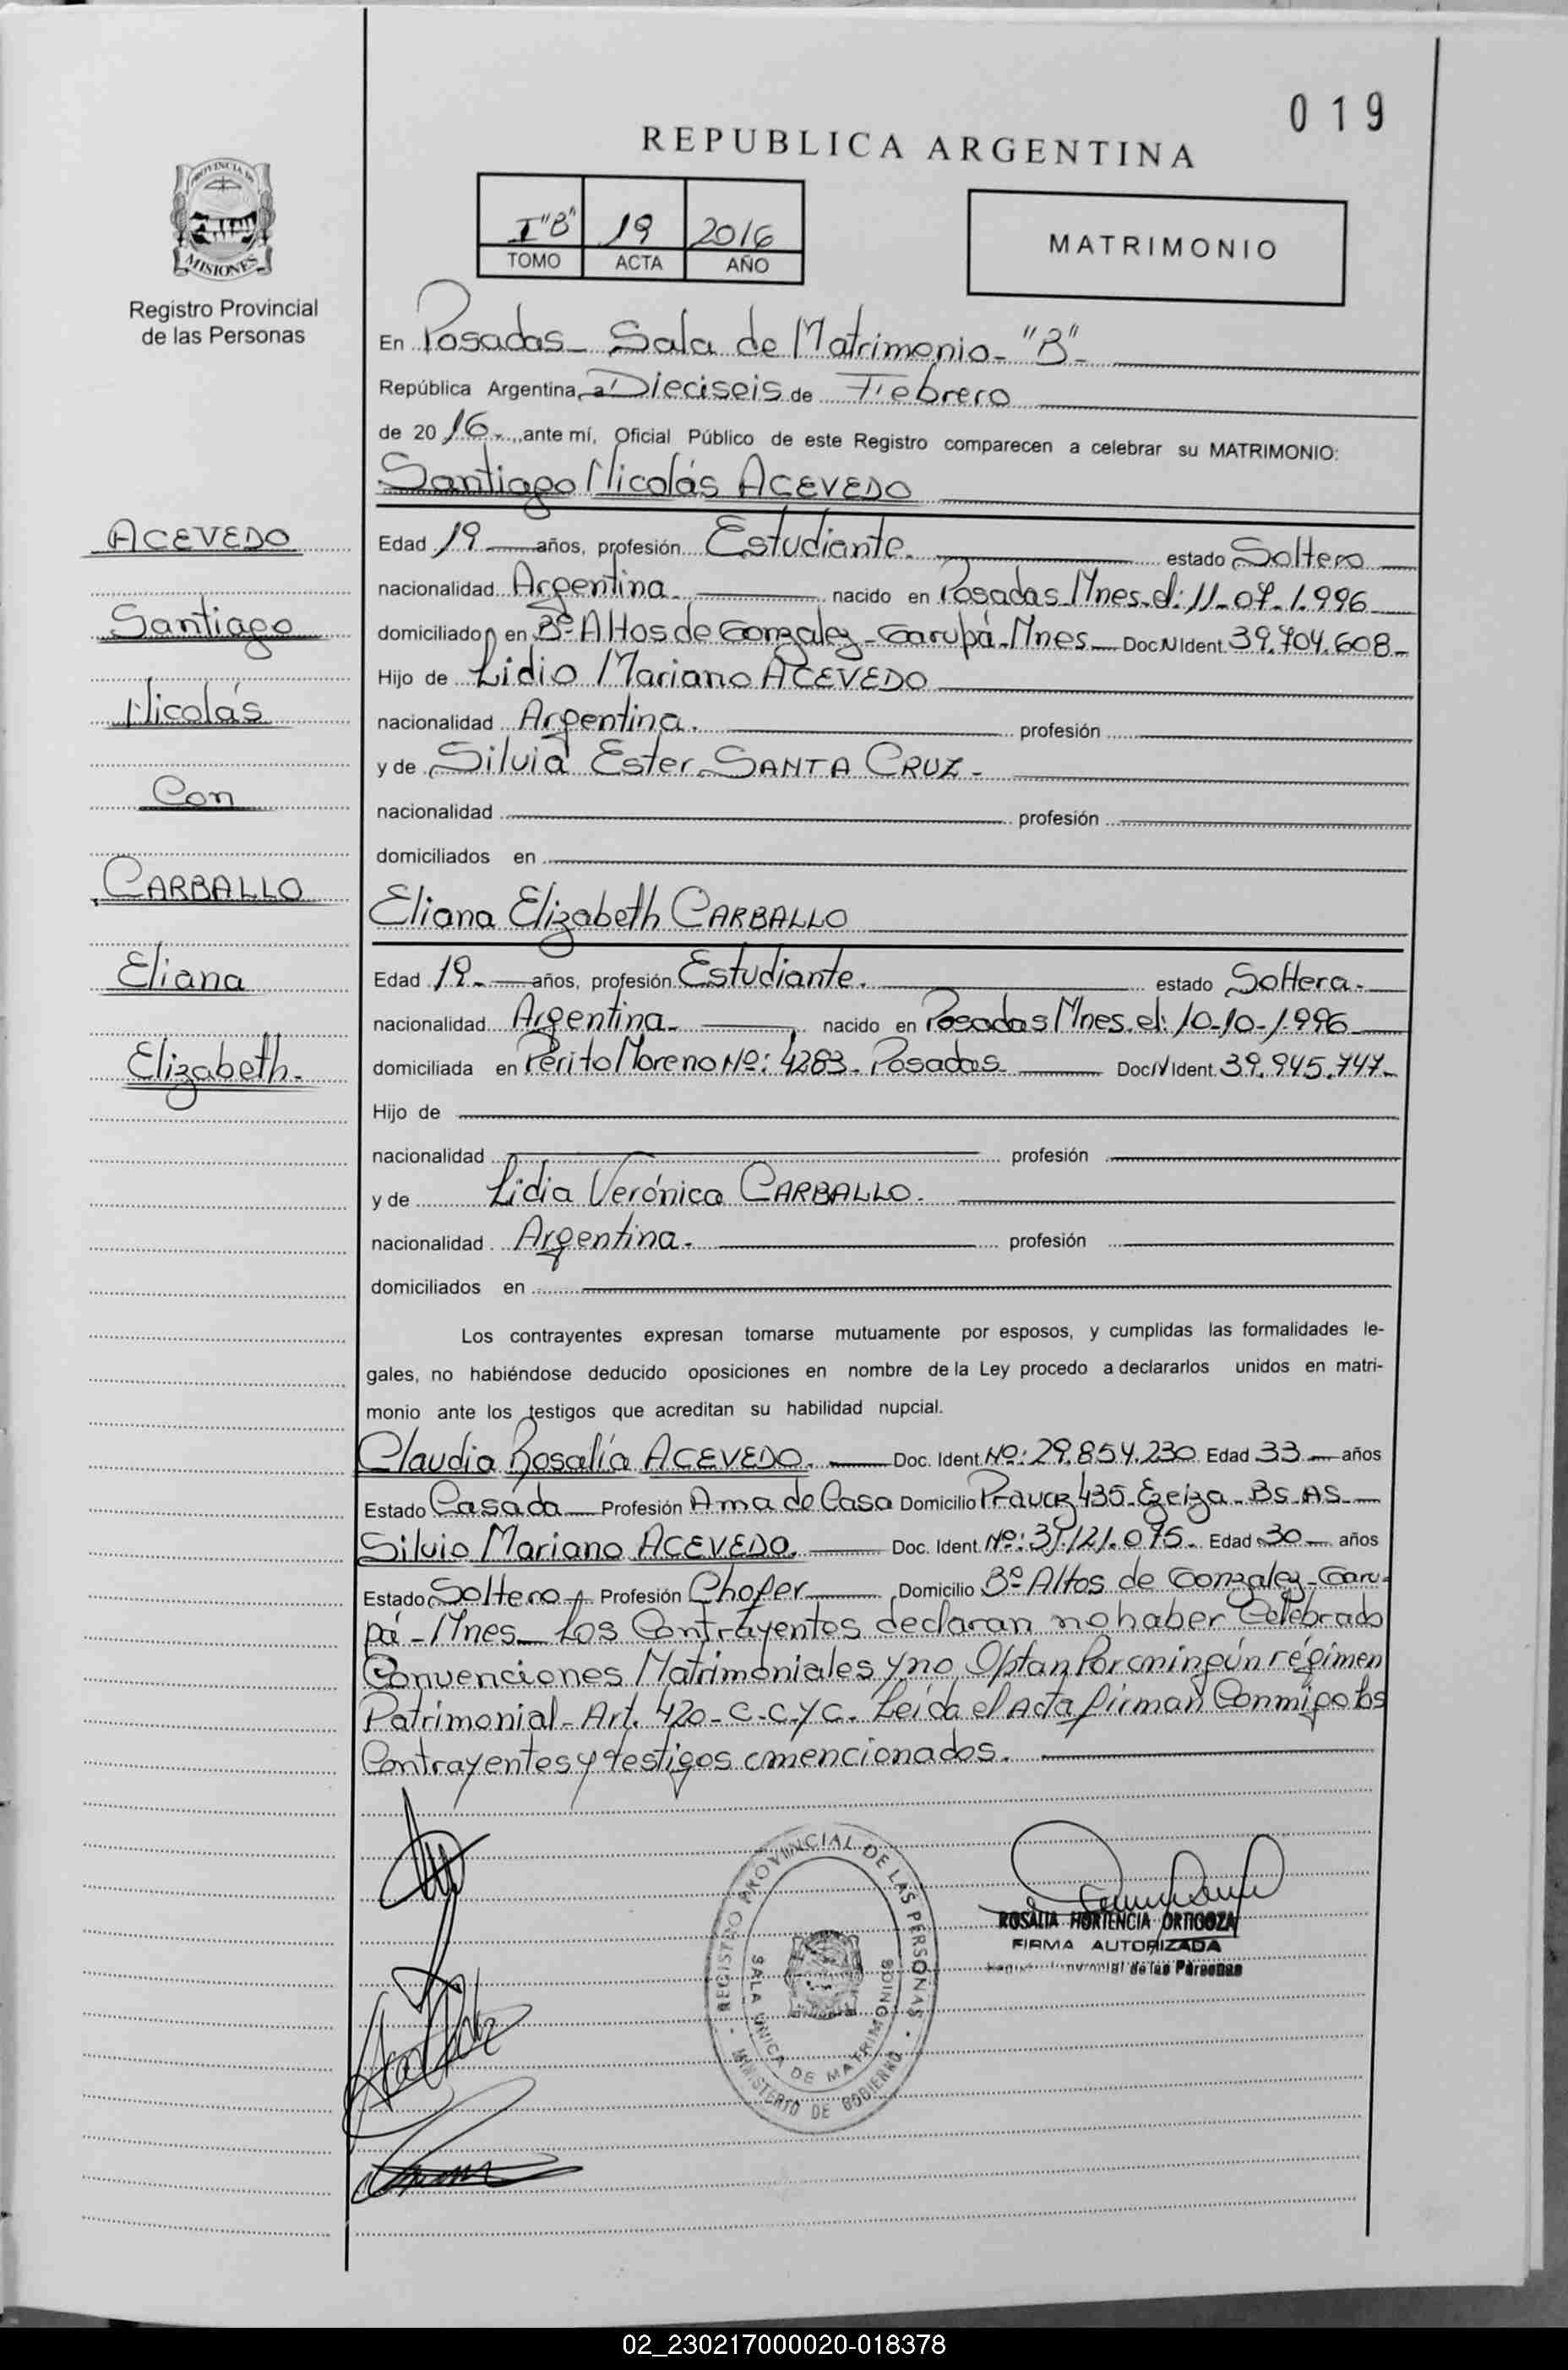 019
REPUBLICA ARGENTINA
I"B" 19 2016
TOMO ACTA AÑO
MATRIMONIO
PROVINCIA DE
MISIONES
Registro Provincial
de las Personas
En Posadas - Sala de Matrimonio - "B" -
República Argentina, a Dieciseis de Febrero
de 20 16 -, ante mí, Oficial Público de este Registro comparecen a celebrar su MATRIMONIO:
Santiago Nicolás ACEVEDO
ACEVEDO
Santiago
Nicolás
Con
CARBALLO
Eliana
Elizabeth -
Edad 19 años, profesión Estudiante. estado Soltero
nacionalidad Argentina - nacido en Posadas Mnes. el: 11-07-1.996
domiciliado en Bº Altos de Gonzalez - Garupá - Mnes - Doc N Ident. 39.704.608 -
Hijo de Lidio Mariano ACEVEDO
nacionalidad Argentina. profesión
y de Silvia Ester SANTA CRUZ -
nacionalidad profesión
domiciliados en
Eliana Elizabeth CARBALLO
Edad 19 - años, profesión Estudiante. estado Soltera -
nacionalidad Argentina - nacido en Posadas Mnes. el: 10-10-1.996
domiciliada en Perito Moreno Nº: 4283 - Posadas Doc N Ident. 39.945.747 -
Hijo de
nacionalidad profesión
y de Lidia Verónica CARBALLO.
nacionalidad Argentina - profesión
domiciliados en
Los contrayentes expresan tomarse mutuamente por esposos, y cumplidas las formalidades le-
gales, no habiéndose deducido oposiciones en nombre de la Ley procedo a declararlos unidos en matri-
monio ante los testigos que acreditan su habilidad nupcial.
Claudia Rosalía ACEVEDO. Doc. Ident. Nº: 29.854.230 Edad 33 años
Estado Casada Profesión Ama de Casa Domicilio Pravaz 435 - Ezeiza - Bs. As.
Silvio Mariano ACEVEDO. Doc. Ident. Nº: 31.121.075 - Edad 30 años
Estado Soltero Profesión Chofer Domicilio Bº Altos de Gonzalez - Garu-
pá - Mnes - Los Contrayentes declaran no haber Celebrado
Convenciones Matrimoniales y no Optan Por ningún régimen
Patrimonial - Art. 420 - C.C.y C. Leída el Acta firman Conmigo los
Contrayentes y testigos mencionados.
REGISTRO PROVINCIAL DE LAS PERSONAS
SALA UNICA DE MATRIMONIOS
MINISTERIO DE GOBIERNO
ROSALIA HORTENCIA ORTIGOZA
FIRMA AUTORIZADA
de las Personas
02_230217000020-018378